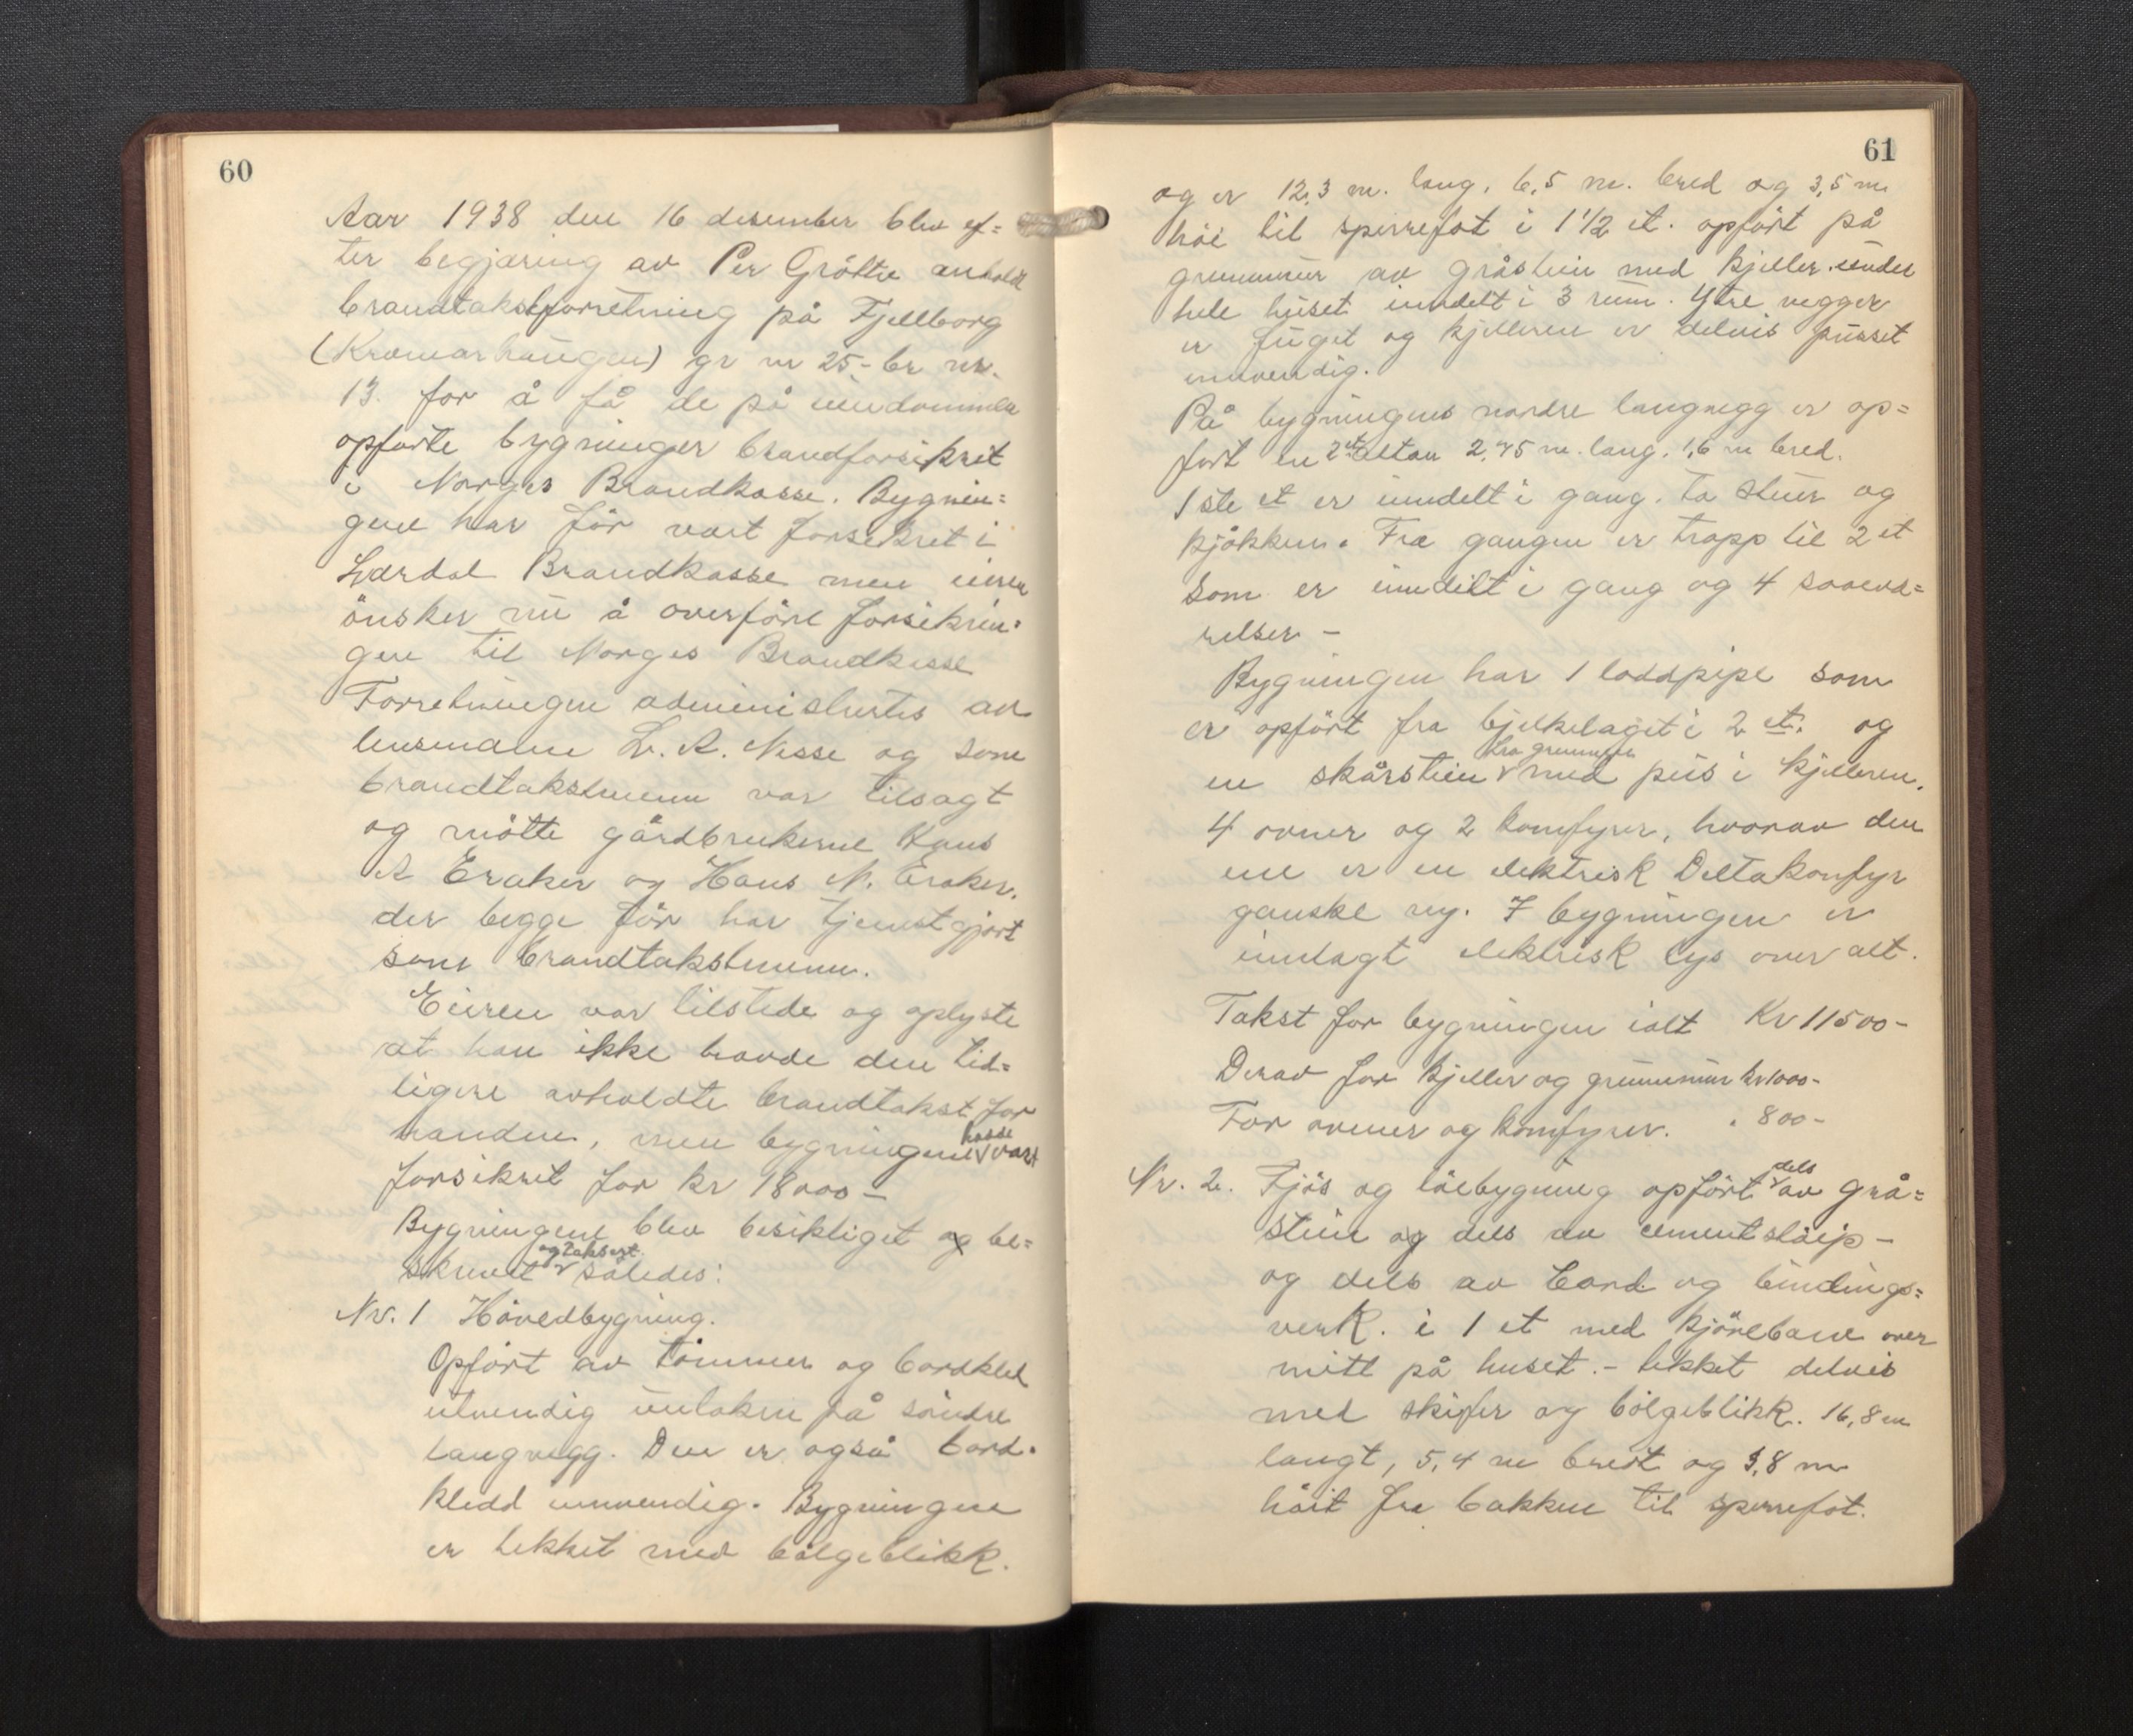 60
Aar 1938 den 16 desember blev ef=
ter begjæring av Per Gröttie avholdt
brandtakstforretning på Fjellborg
(Kramarhaugen) gr nr 25 - br nr.
13. for å få de på eiendommen
opførte bygninger brandforsikret
i Norges Brandkasse. Bygnin=
gene har før vært forsikret i
Lærdal Brandkasse men eieren
önsker nu å overføre forsikrin=
gen til Norges Brandkasse
Forretningen administrertes av
lensmann L. A. Nesse og som
brandtakstmenn var tilsagt
og møtte gårdbrukerne Hans
A Eraker og Hans N. Eraker,
der begge før har tjenstgjort
som brandtakstmenn.
Eieren var tilstede og oplyste
at han ikke havde den tid=
ligere avholdte brandtakst for
handen, men bygningene hadde vært
forsikret for kr 18000 -
Bygningene blev besiktiget og be=
skrevet og taksert således:
Nr. 1 Hovedbygning.
Opført av tømmer og bordkled
utvendig untaken på söndre
langvegg. Den er også bord=
kledd innvendig. Bygningen
er tekket med bølgeblikk.
61
og er 12,3 m. lang, 6,5 m. bred og 3,5 m
høi til sperrefot i 1 1/2 et. opført på
grunnmur av gråstein med kjeller under
hele huset inndelt i 3 rum. Ytre vegger
er fuget og kjelleren er delvis pusset
innvendig.
På bygningens nordre langvegg er op=
ført en 2 et altan 2,45 m. lang, 1,6 m bred.
1ste et er inndelt i gang, to stuer og
kjøkken. Fra gangen er trapp til 2 et
som er inndelt i gang og 4 soveva=
relser -
Bygningen har 1 loddpipe som
er opført fra bjelkelaget i 2 et. og
en skårstein fra grunnen med peis i kjelleren.
4 ovner og 2 komfyrer, hvorav den
ene er en elektrisk Deltakomfyr
ganske ny. I bygningen er
innlagt elektrisk lys over alt.
Takst for bygningen ialt Kr 11500 -
Derav for kjeller og grunnmur kr 1000 -
For ovner og komfyrer. " 800 -
Nr. 2. Fjös og löebygning opført dels av grå=
stein og dels av cementstöip -
og dels av bord og bindings=
verk. i 1 et med kjørebane over
mitt på huset. - tekket delvis
med skifer og bölgeblikk. 16,8 m
langt, 5,4 m bredt og 3,8 m
høit fra bakken til sperrefot.